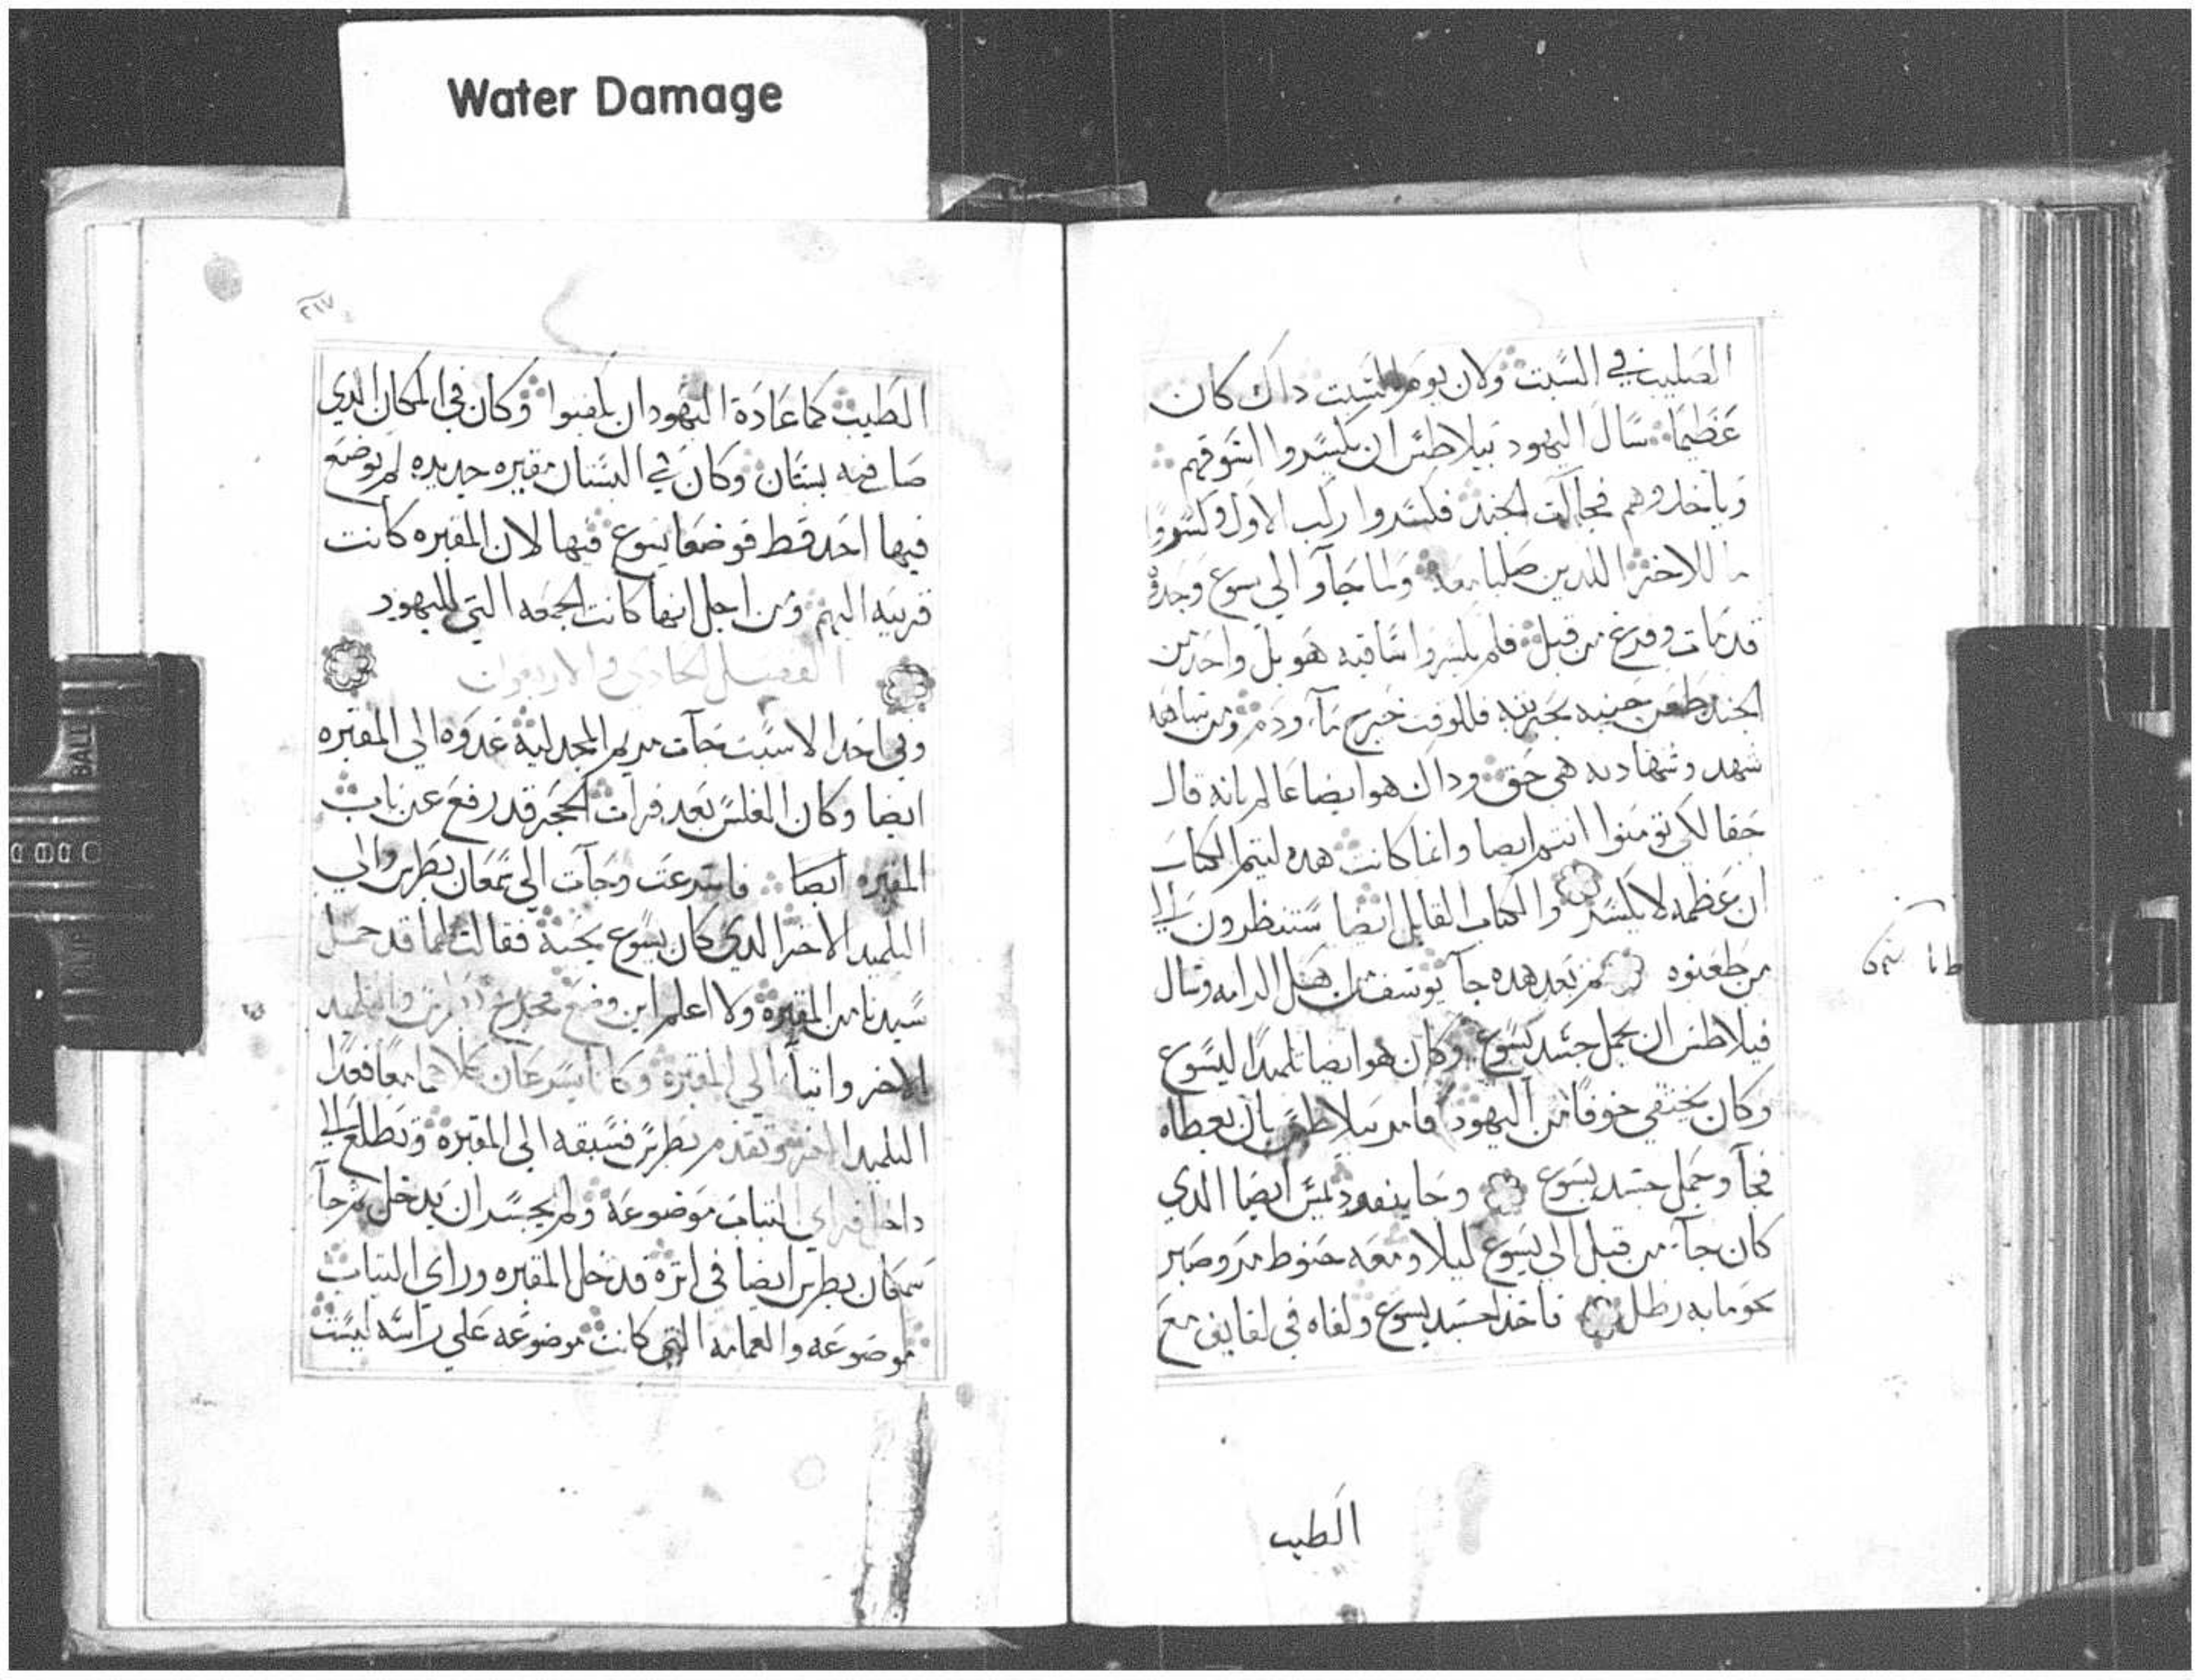 Water Damage
الصليب في السبت ولان يوم السبت داك كان
عظيما سال اليهود بيلاطس ان يكسروا اسوقهم
وياخدوهم فجات الجند فكسروا ركب الاول وكسروا
الاخر اللدين صلبا معه ولما جاو الي يسوع وجدوه
قد مات وفرغ من قبل فلم يكسروا ساقيه هو بل واحد من
الجند طعن جنبه بحربه فللوقت خرج ماء ودم ومن شاهد
شهد وشهادته هي حق وداك هو ايضا عالم بانه قال
حقا لكي تومنوا انتم ايضا وانما كانت هده ليتم الكتاب
ان عظمه لا يكسر والكتاب القايل ايضا ستنظرون الي
من طعنوه ثم بعد هده جا يوسف من الرامه وسال
فيلاطس ان يحمل جسد يسوع وكان هو ايضا تلميدا ليسوع
وكان يختفي خوفا من اليهود فامر بيلاطس بان يعطاه
فجا وحمل جسد يسوع وجا نيقوديمس ايضا الدي
كان جا من قبل الي يسوع ليلا ومعه حنوط مر وصبر
نحو مايه رطل فاخد جسد يسوع ولفاه في لفايف مع
الطيب
٢١٧
الطيب كما عادة اليهود ان يلفنوا وكان في المكان الدي
صلب فيه بستان وكان في البستان مقبره جديده لم يوضع
فيها احد قط فوضعا يسوع فيها لان المقبره كانت
قريبه اليهم ومن اجل انها كانت الجمعه التي لليهود
الفصل الحادي والاربعون
وفي احد الاسبت جات مريم المجدليه غدوه الي المقبره
ايضا وكان الغلس بعد فرات الحجر قد رفع عن باب
المقبره ايضا فاسرعت وجات الي سمعان بطرس والي
التلميد الاخر الدي كان يسوع يحبه فقالت لهما قد حمل
سيدنا من المقبره ولا اعلم اين وضع فخرج بطرس والتلميد
الاخر واتيا الي المقبره وكانا يسرعان كلاهما معا فعدا
التلميد الاخر وتقدم بطرس فسبقه الي المقبره وتطلع الي
داخل فراي الثياب موضوعه ولم يجسر ان يدخل ثم جا
سمعان بطرس ايضا في اثره فدخل المقبره وراي الثياب
موضوعه والعمامه التي كانت موضوعه علي راسه ليست